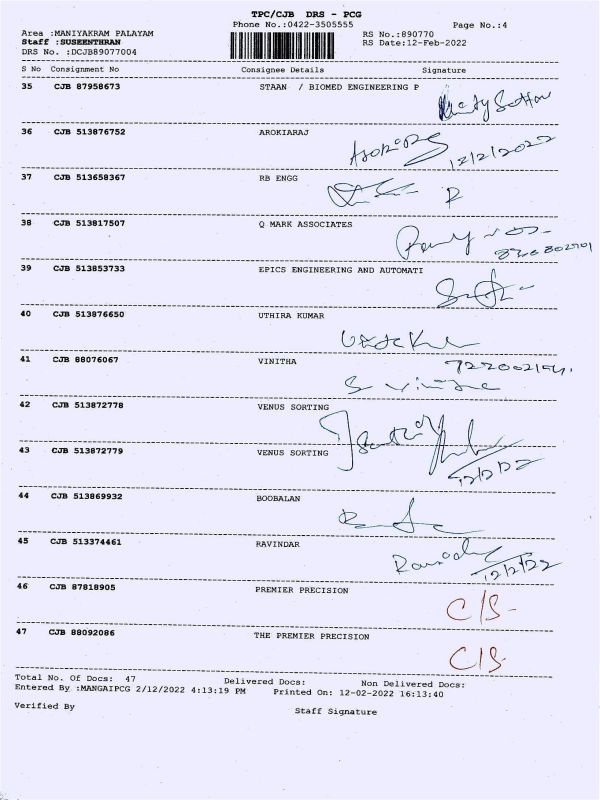 TPC/CJB DRS - PCG
Phone No.:0422-3505555 Page No.:4
Area :MANIYAKRAM PALAYAM RS No.:890770
Staff :SUSEENTHRAN RS Date:12-Feb-2022
DRS No. :DCJB89077004
S No Consignment No Consignee Details Signature
35 CJB 87958673 STAAN / BIOMED ENGINEERING P
36 CJB 513876752 AROKIARAJ
12/2/2022
37 CJB 513658367 RB ENGG
R
38 CJB 513817507 Q MARK ASSOCIATES
39 CJB 513853733 EPICS ENGINEERING AND AUTOMATI
40 CJB 513876650 UTHIRA KUMAR
41 CJB 88076067 VINITHA
S Vinitha
42 CJB 513872778 VENUS SORTING
43 CJB 513872779 VENUS SORTING
12/2/22
44 CJB 513869932 BOOBALAN
45 CJB 513374461 RAVINDAR
12/2/22
46 CJB 87818905 PREMIER PRECISION
C/S-
47 CJB 88092086 THE PREMIER PRECISION
C/S-
Total No. Of Docs: 47 Delivered Docs: Non Delivered Docs:
Entered By :MANGAIPCG 2/12/2022 4:13:19 PM Printed On: 12-02-2022 16:13:40
Verified By Staff Signature